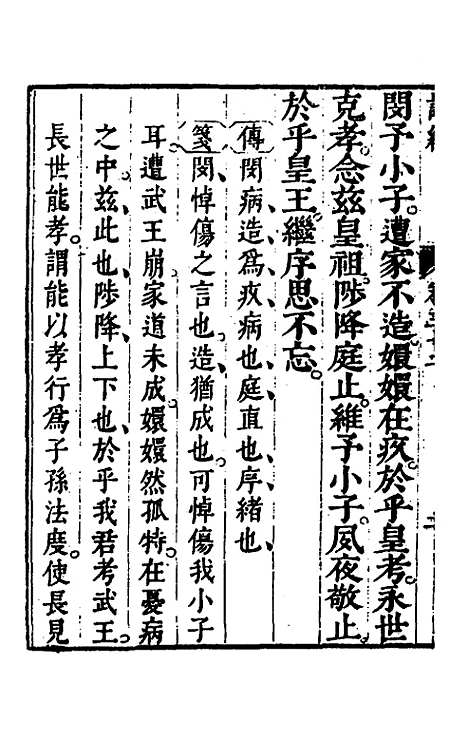 閔予小子。遭家不造。嬛嬛在疚。於乎皇考。永世
克孝。念兹皇祖。陟降庭止。維予小子。夙夜敬止。
於乎皇王。繼序思不忘。
傳閔病造爲疚病也庭直也序緒也
箋閔悼傷之言也。造猶成也。可悼傷我小子
耳遭武王崩家道未成嬛嬛然孤特。在憂病
之中。兹此也陟降上下也於乎我君考武王。
長世能孝。謂能以孝行爲子孫法度。使長見